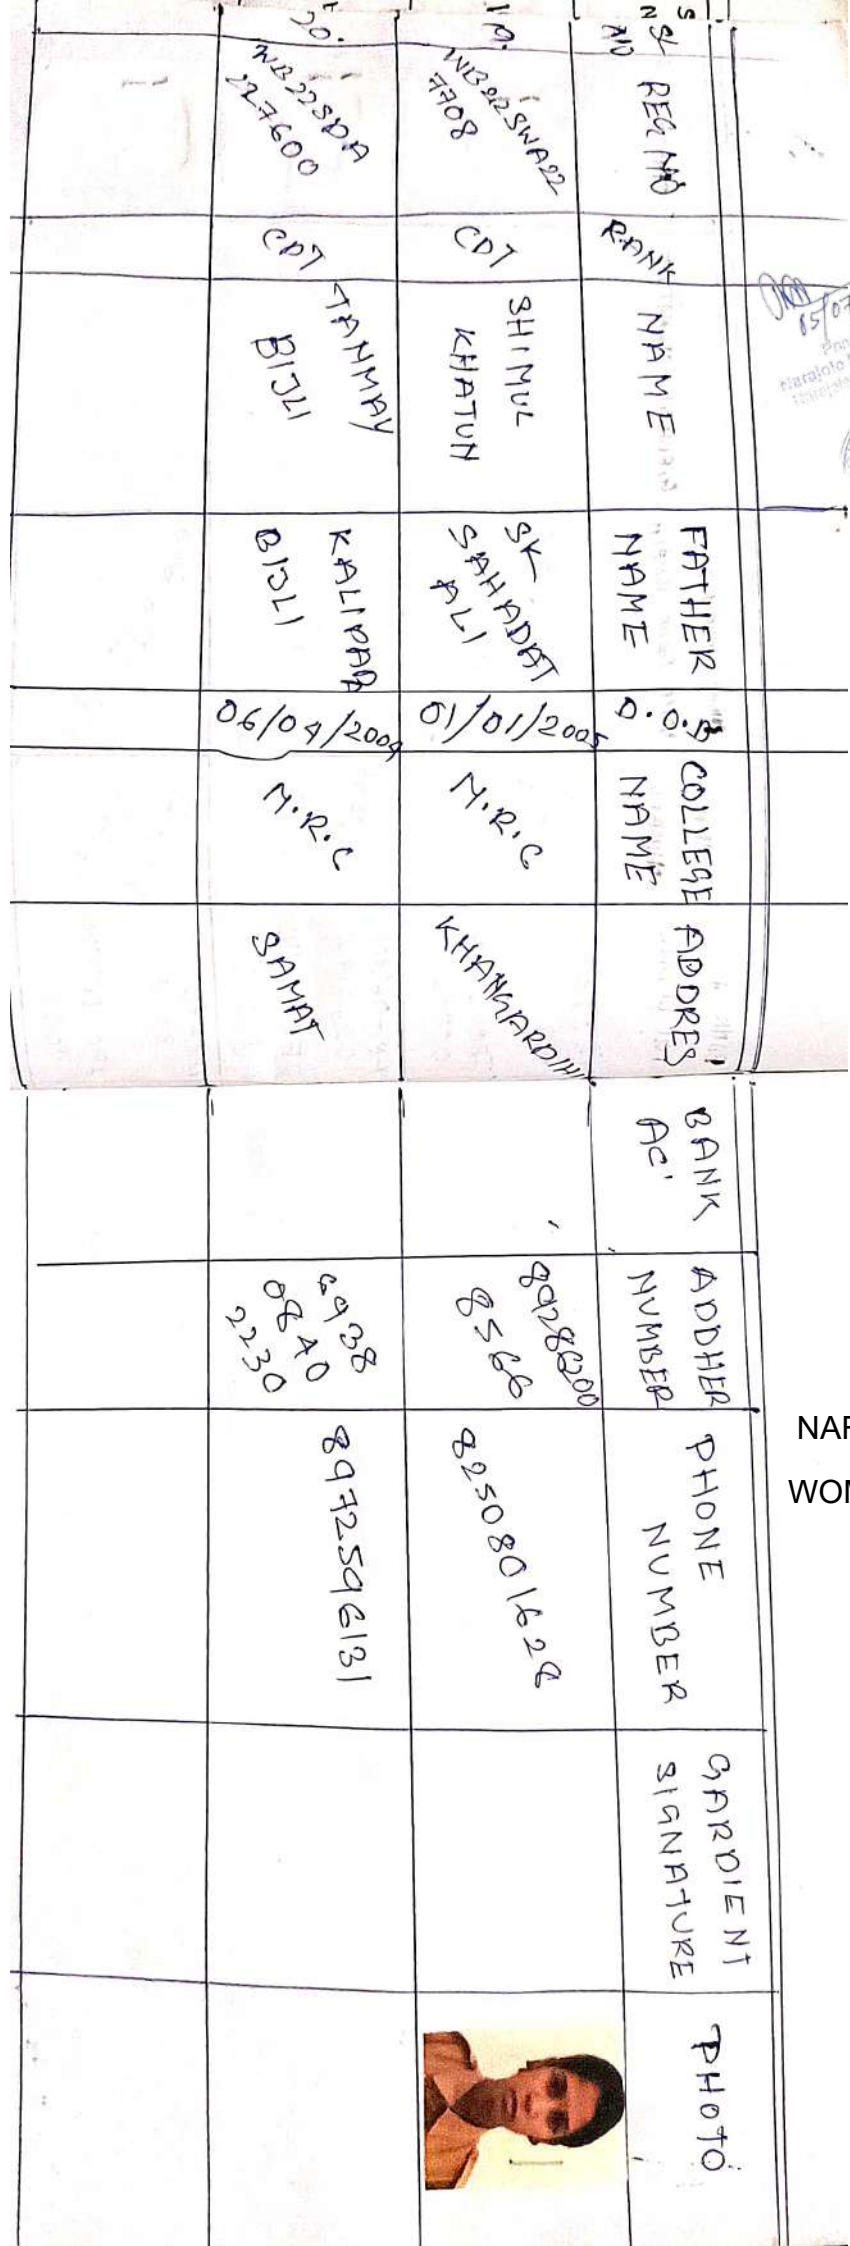 SL NO
REG NO.
RANK
NAME
FATHER NAME
D.O.B
COLLEGE NAME
ADDRES
BANK AC'
ADDHER NUMBER
PHONE NUMBER
GARDIENT SIGNATURE
PHOTO
19.
WB22SWA22
7708
CDT
SHIMUL
KHATUN
SK
SAHADAT
ALI
01/01/2005
M.R.C
KHANGARDIHI
89286200
8566
8250801628
20.
WB22SDA
227600
CDT
TANMAY
BIJLI
KALIPADA
BIJLI
06/04/2004
M.R.C
SAMAT
6938
0840
2230
8972596131
05/07